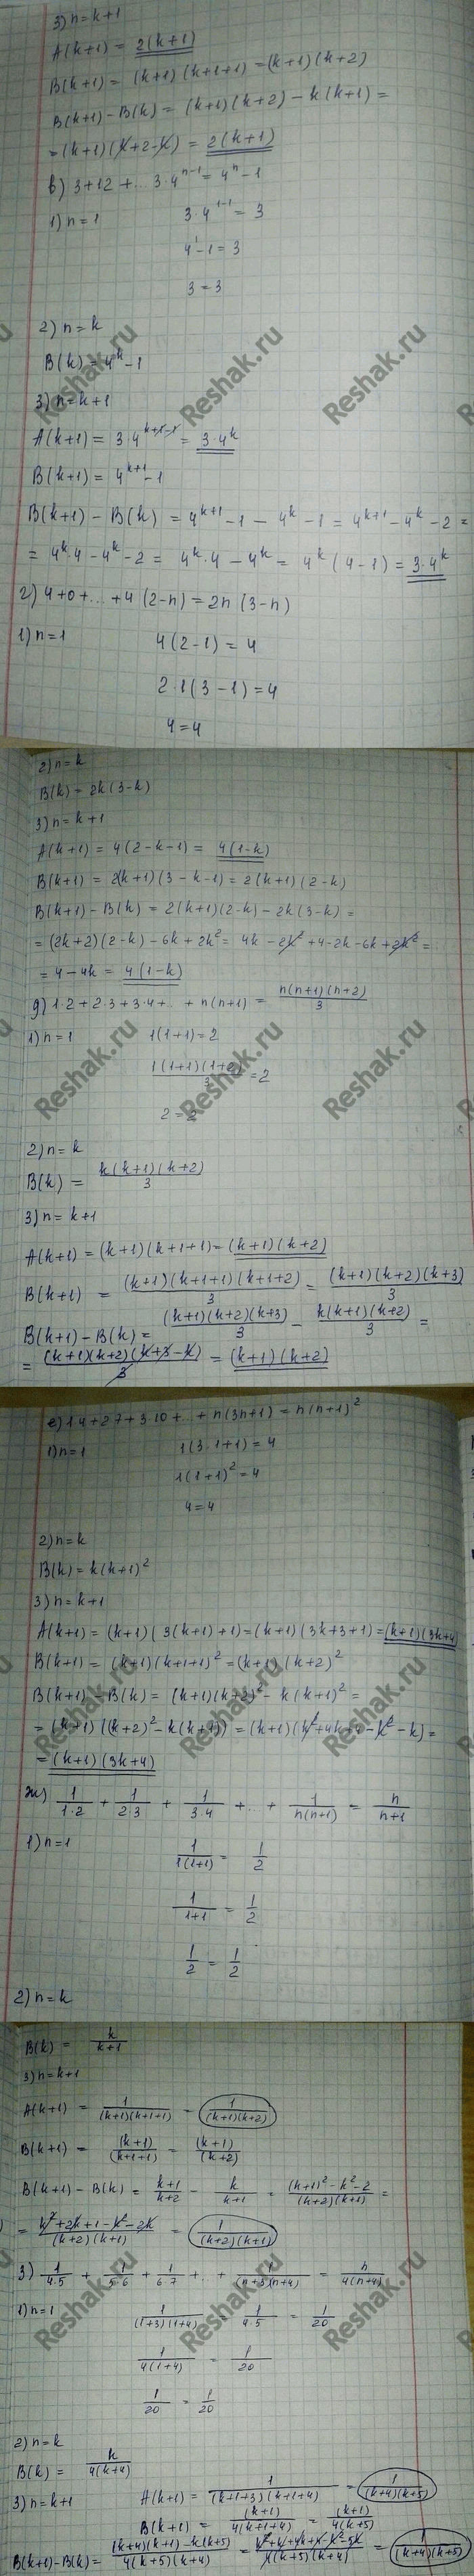 3) n = k+1
A(k+1) = 2(k+1)
B(k+1) = (k+1)(k+1+1) = (k+1)(k+2)
B(k+1) - B(k) = (k+1)(k+2) - k(k+1) =
= (k+1)(k+2-k) = 2(k+1)
в) 3+12+... 3·4^{n-1} = 4^n - 1
1) n = 1 3·4^{1-1} = 3
4^1 - 1 = 3
3 = 3
2) n = k
B(k) = 4^k - 1
3) n = k+1
A(k+1) = 3·4^{k+1-1} = 3·4^k
B(k+1) = 4^{k+1} - 1
B(k+1) - B(k) = 4^{k+1} - 1 - 4^k - 1 = 4^{k+1} - 4^k - 2 =
= 4^k·4 - 4^k - 2 = 4^k·4 - 4^k = 4^k(4-1) = 3·4^k
г) 4+0+...+4(2-n) = 2n(3-n)
1) n = 1 4(2-1) = 4
2·1(3-1) = 4
4 = 4
2) n = k
B(k) = 2k(3-k)
3) n = k+1
A(k+1) = 4(2-k-1) = 4(1-k)
B(k+1) = 2(k+1)(3-k-1) = 2(k+1)(2-k)
B(k+1) - B(k) = 2(k+1)(2-k) - 2k(3-k) =
= (2k+2)(2-k) - 6k + 2k² = 4k - 2k² + 4 - 2k - 6k + 2k² =
= 4 - 4k = 4(1-k)
д) 1·2+2·3+3·4+...+n(n+1) = n(n+1)(n+2)/3
1) n = 1 1(1+1) = 2
1(1+1)(1+2)/3 = 2
2 = 2
2) n = k
B(k) = k(k+1)(k+2)/3
3) n = k+1
A(k+1) = (k+1)(k+1+1) = (k+1)(k+2)
B(k+1) = (k+1)(k+1+1)(k+1+2)/3 = (k+1)(k+2)(k+3)/3
B(k+1) - B(k) = (k+1)(k+2)(k+3)/3 - k(k+1)(k+2)/3 =
= (k+1)(k+2)(k+3-k)/3 = (k+1)(k+2)
е) 1·4+2·7+3·10+...+n(3n+1) = n(n+1)²
1) n = 1 1(3·1+1) = 4
1(1+1)² = 4
4 = 4
2) n = k
B(k) = k(k+1)²
3) n = k+1
A(k+1) = (k+1)(3(k+1)+1) = (k+1)(3k+3+1) = (k+1)(3k+4)
B(k+1) = (k+1)(k+1+1)² = (k+1)(k+2)²
B(k+1) - B(k) = (k+1)(k+2)² - k(k+1)² =
= (k+1)((k+2)² - k(k+1)) = (k+1)(k²+4k+4-k²-k) =
= (k+1)(3k+4)
ж) 1/(1·2) + 1/(2·3) + 1/(3·4) + ... + 1/(n(n+1)) = n/(n+1)
1) n = 1 1/(1(1+1)) = 1/2
1/(1+1) = 1/2
1/2 = 1/2
2) n = k
B(k) = k/(k+1)
3) n = k+1
A(k+1) = 1/((k+1)(k+1+1)) = 1/((k+1)(k+2))
B(k+1) = (k+1)/(k+1+1) = (k+1)/(k+2)
B(k+1) - B(k) = (k+1)/(k+2) - k/(k+1) = ((k+1)²-k²-2)/((k+2)(k+1)) =
= (k²+2k+1-k²-2k)/((k+2)(k+1)) = 1/((k+2)(k+1))
з) 1/(4·5) + 1/(5·6) + 1/(6·7) + ... + 1/((n+3)(n+4)) = n/(4(n+4))
1) n = 1 1/((1+3)(1+4)) = 1/(4·5) = 1/20
1/(4(1+4)) = 1/20
1/20 = 1/20
2) n = k
B(k) = k/(4(k+4))
3) n = k+1 A(k+1) = 1/((k+1+3)(k+1+4)) = 1/((k+4)(k+5))
B(k+1) = (k+1)/(4(k+1+4)) = (k+1)/(4(k+5))
B(k+1) - B(k) = ((k+4)(k+1)-k(k+5))/(4(k+5)(k+4)) = (k²+k+4k+4-k²-5k)/(4(k+5)(k+4)) = 1/((k+4)(k+5))
Reshak.ru
Reshak.ru
Reshak.ru
Reshak.ru
Reshak.ru
Reshak.ru
Reshak.ru
Reshak.ru
Reshak.ru
Reshak.ru
Reshak.ru
Reshak.ru